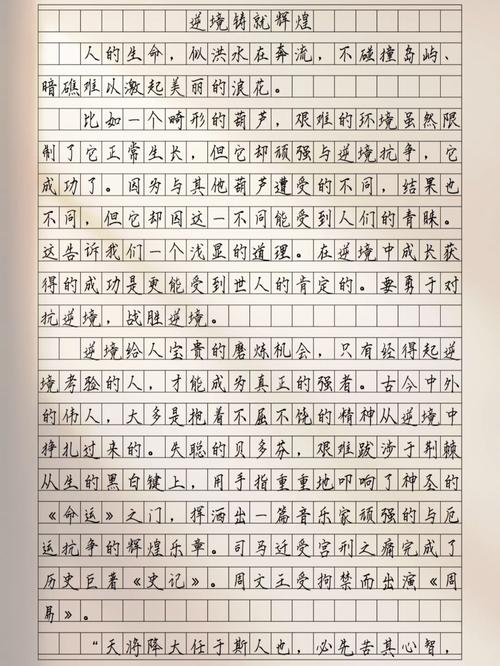 逆境铸就辉煌
人的生命，似洪水在奔流，不碰撞岛屿、
暗礁难以激起美丽的浪花。
比如一个畸形的葫芦，艰难的环境虽然限
制了它正常生长，但它却顽强与逆境抗争，它
成功了。因为与其他葫芦遭受的不同，结果也
不同，但它却因这一不同能受到人们的青睐。
这告诉我们一个浅显的道理。在逆境中成长获
得的成功是更能受到世人的肯定的。要勇于对
抗逆境，战胜逆境。
逆境给人宝贵的磨炼机会，只有经得起逆
境考验的人，才能成为真正的强者。古今中外
的伟人，大多是抱着不屈不饶的精神从逆境中
挣扎过来的。失聪的贝多芬，艰难跋涉于荆棘
从生的黑白键上，用手指重重地叩响了神圣的
《命运》之门，挥洒出一篇音乐家顽强的与厄
运抗争的辉煌乐章。司马迁受宫刑之痛完成了
历史巨著《史记》。周文王受拘禁而出演《周
易》。
“天将降大任于斯人也，必先苦其心智，